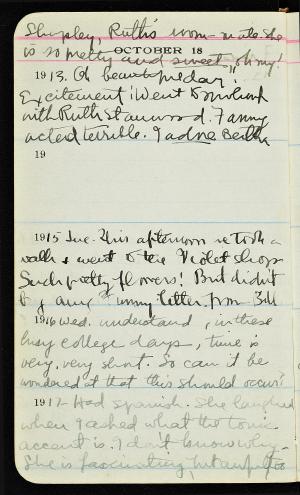 Shepley, Ruth's room-mate. She
is so pretty and sweet, oh my!
OCTOBER 18
1913. Oh beautiful day!
Excitement! Went
with Ruth Stanwood. Fanny
acted terrible. I adore
19
1915 Tue. This afternoon we took a
walk & went to the Violet shop.
Such pretty flowers! But didn't
buy any. Funny letter from
1916 Wed. understand, in these
busy college days, time is
very, very short. So can it be
wondered at that this should occur?
1917 Had Spanish. She laughed
when I asked what the tonic
accent is. I don't know why.
She is fascinating, but